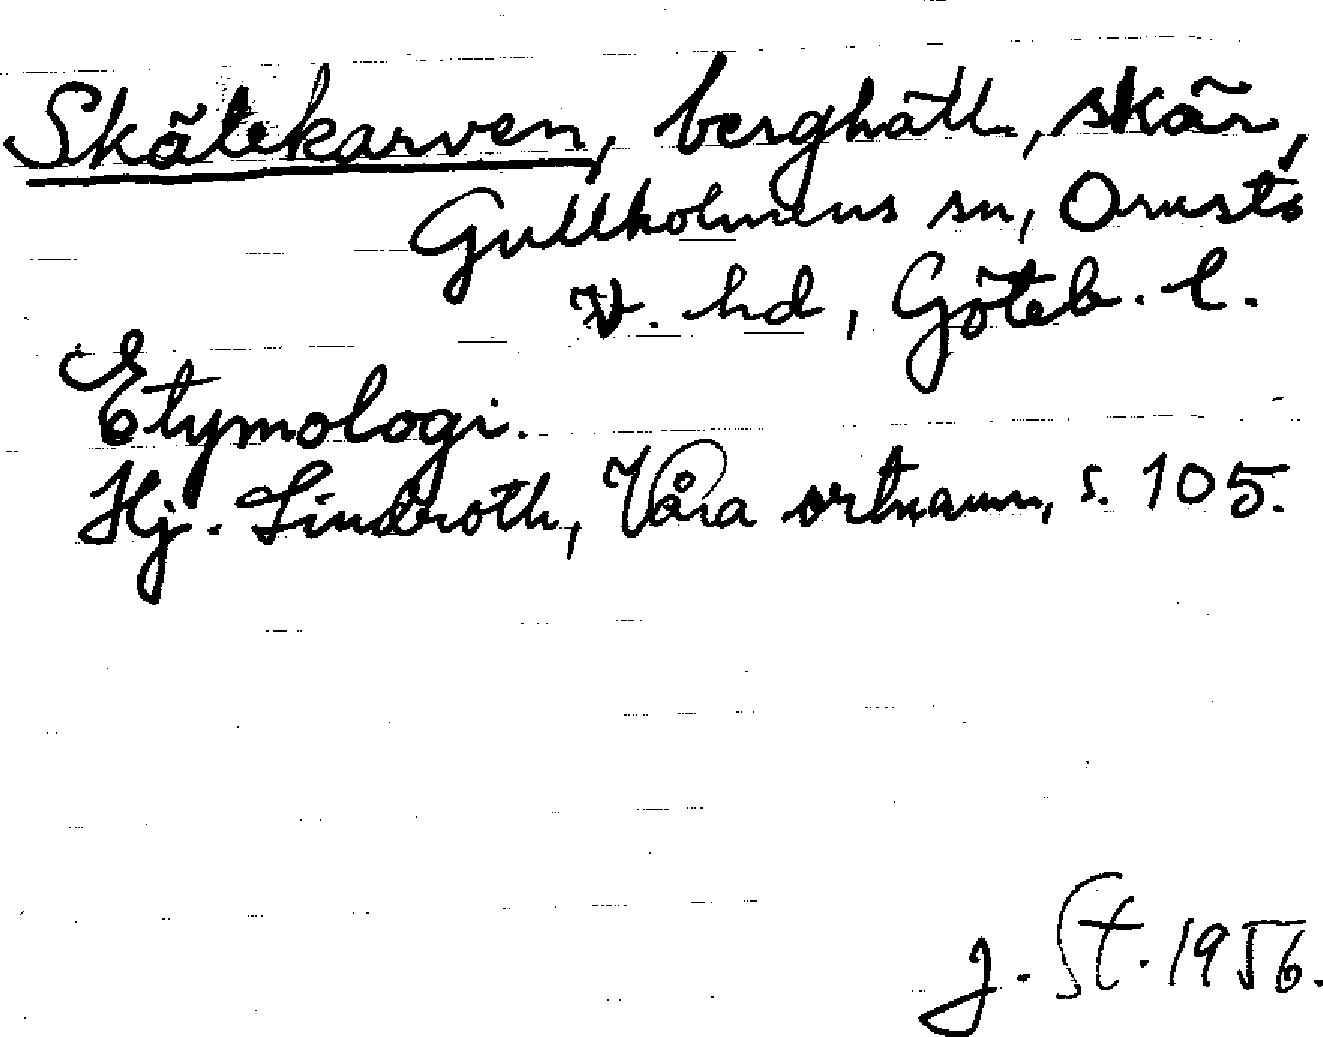 Skätekarven, berghäll, skär,
Gullholmens sn, Orusts
V. hd, Göteb. l.
Etymologi.
Hj. Lindroth, Våra ortnamn, s. 105.
J. St. 1956.